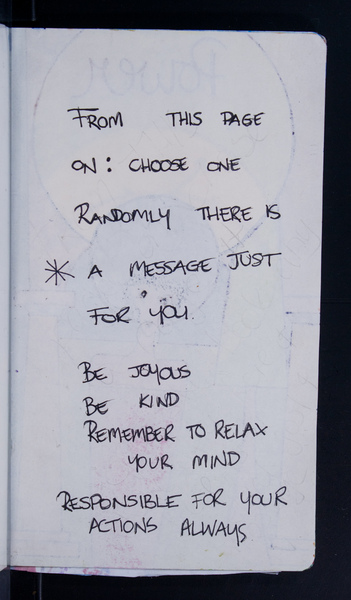 Power
FROM THIS PAGE
ON: CHOOSE ONE
RANDOMLY THERE IS
* A MESSAGE JUST
FOR YOU.
BE JOYOUS
BE KIND
REMEMBER TO RELAX
YOUR MIND
RESPONSIBLE FOR YOUR
ACTIONS ALWAYS